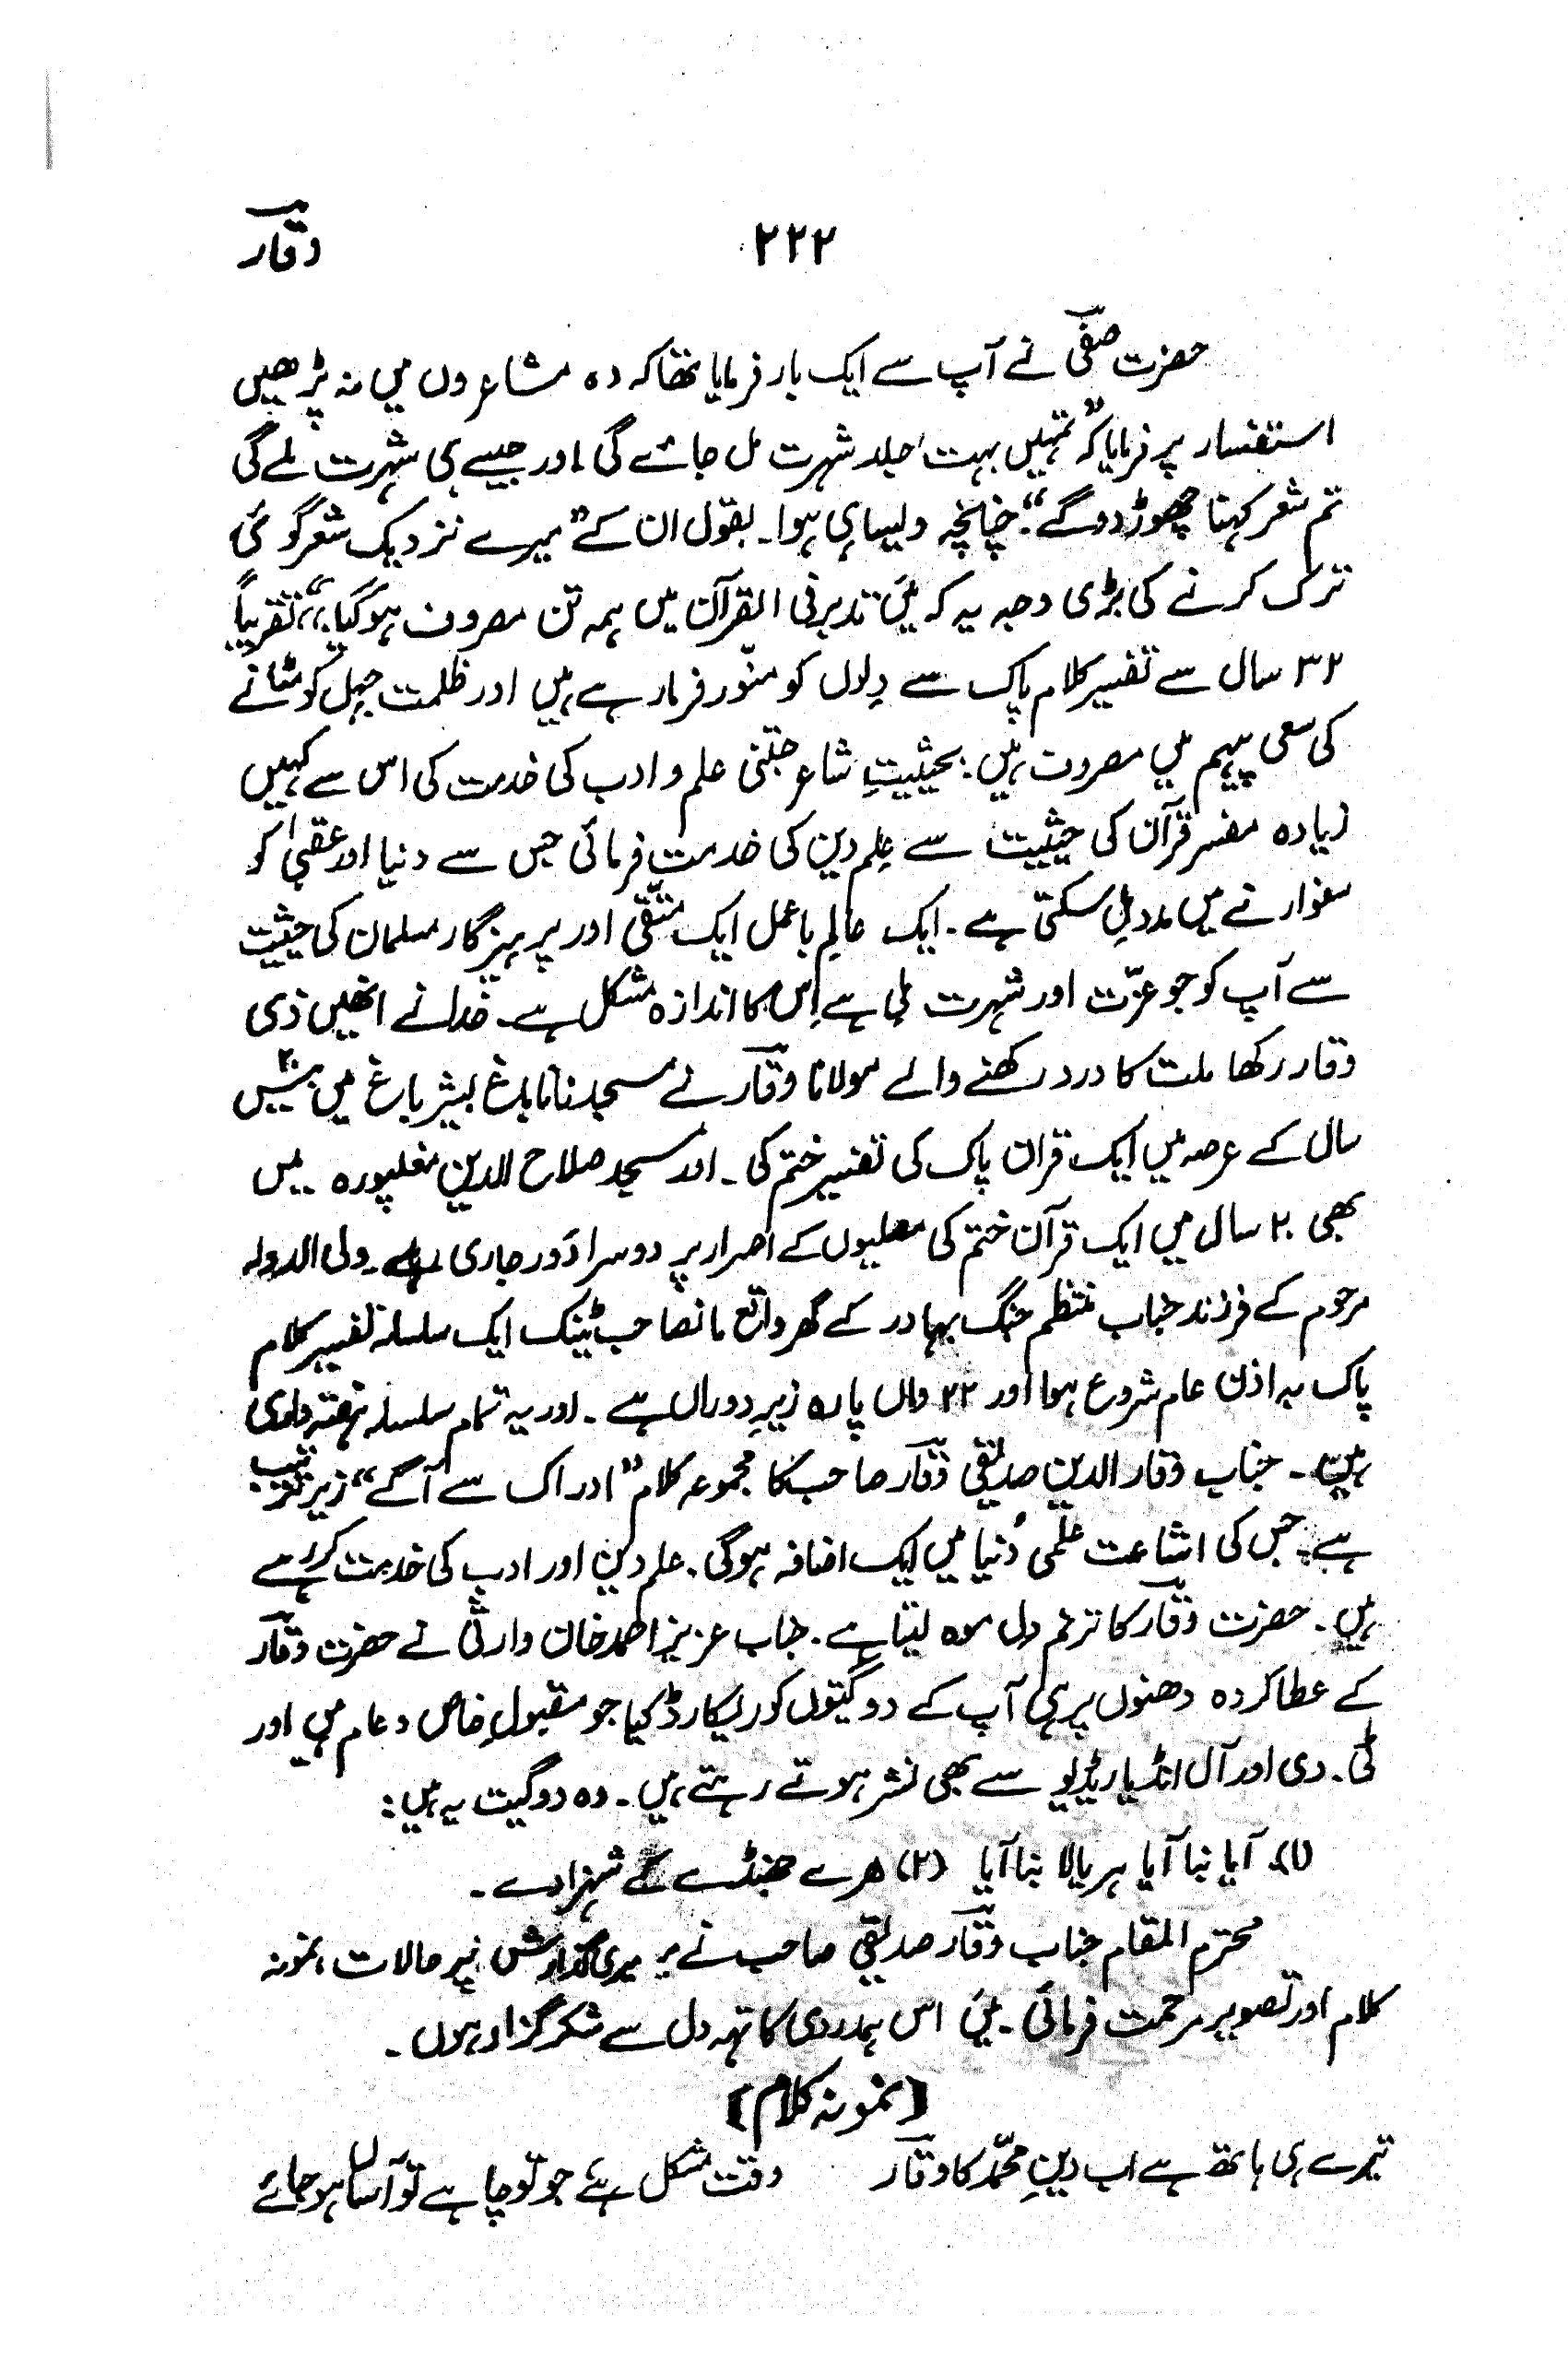 وقار
۲۲۲
حضرت صفی نے آپ سے ایک بار فرمایا تھا کہ وہ مشاعروں میں نہ پڑھیں
استفسار پر فرمایا کہ "تمہیں بہت جلد شہرت مل جائے گی اور جیسے ہی شہرت ملے گی
تم شعر کہنا چھوڑ دو گے"۔ چنانچہ ویسا ہی ہوا۔ بقول ان کے "میرے نزدیک شعر گوئی
ترک کرنے کی بڑی وجہ یہ کہ میں تدبر فی القرآن میں ہمہ تن مصروف ہو گیا،" تقریباً
۳۲ سال سے تفسیر کلام پاک سے دِلوں کو منّور فرما رہے ہیں اور ظلمت جہل کو مٹانے
کی سعی پیہم میں مصروف ہیں۔ بحیثیتِ شاعر جتنی علم و ادب کی خدمت کی اس سے کہیں
زیادہ مفسر قرآن کی حیثیت سے عِلم دین کی خدمت فرمائی جس سے دنیا اور عقبیٰ کو
سنوارنے میں مدد مِل سکتی ہے۔ ایک عالِم باعمل ایک متّقی اور پرہیزگار مسلمان کی حیثیت
سے آپ کو جو عزّت اور شہرت ملی ہے اِس کا اندازہ مشکل ہے۔ خدا نے انھیں ذی
وقار رکھا ملت کا درد رکھنے والے مولانا وقار نے مسجد نانا باغ بشیر باغ میں بیس ۲۰
سال کے عرصہ میں ایک قران پاک کی تفسیر ختم کی۔ اور مسجد صلاح الدین مغلپورہ میں
بھی ۲۰ سال میں ایک قرآن ختم کی مصلیوں کے اصرار پر دوسرا دَور جاری ہے۔ ولی الدولہ
مرحوم کے فرزند جناب منتظم جنگ بہادر کے گھر واقع مانصاحب ٹینک ایک سلسلہ تفسیر کلام
پاک بہ اذن عام شروع ہوا اور ۲۲ واں پارہ زیرِ دوراں ہے۔ اور یہ تمام سلسلہ ہفتہ واری
ہیں۔ جناب وقار الدین صدیقی وقار صاحب کا مجموعہ کلام "ادراک سے آگے" زیر ترتیب
ہے۔ جس کی اشاعت علمی دُنیا میں ایک اضافہ ہو گی۔ علم دین اور ادب کی خدمت کر رہے
ہیں۔ حضرت وقار کا ترنم دل موہ لیتا ہے۔ جناب عزیز احمد خان وارثی نے حضرت وقار
کے عطا کردہ دھنوں پر ہی آپ کے دو گیتوں کو ریکارڈ کیا جو مقبولِ خاص و عام ہیں اور
ٹی۔ وی اور آل انڈیا ریڈیو سے بھی نشر ہوتے رہتے ہیں۔ وہ دو گیت یہ ہیں:
(۱) آیا بنا آیا ہریالا بنا آیا (۲) ہرے جھنڈے کے شہزادے۔
محترم المقام جناب وقار صدیقی صاحب نے میری گذارش پر حالات، نمونہ
کلام اور تصویر مرحمت فرمائی۔ میں اس ہمدردی کا تہہ دل سے شکر گزار ہوں۔
(نمونہ کلام)
تیرے ہی ہاتھ ہے اب دینِ محمّد کا وقار وقت مشکل ہے جو تو چاہے تو آساں ہو جائے